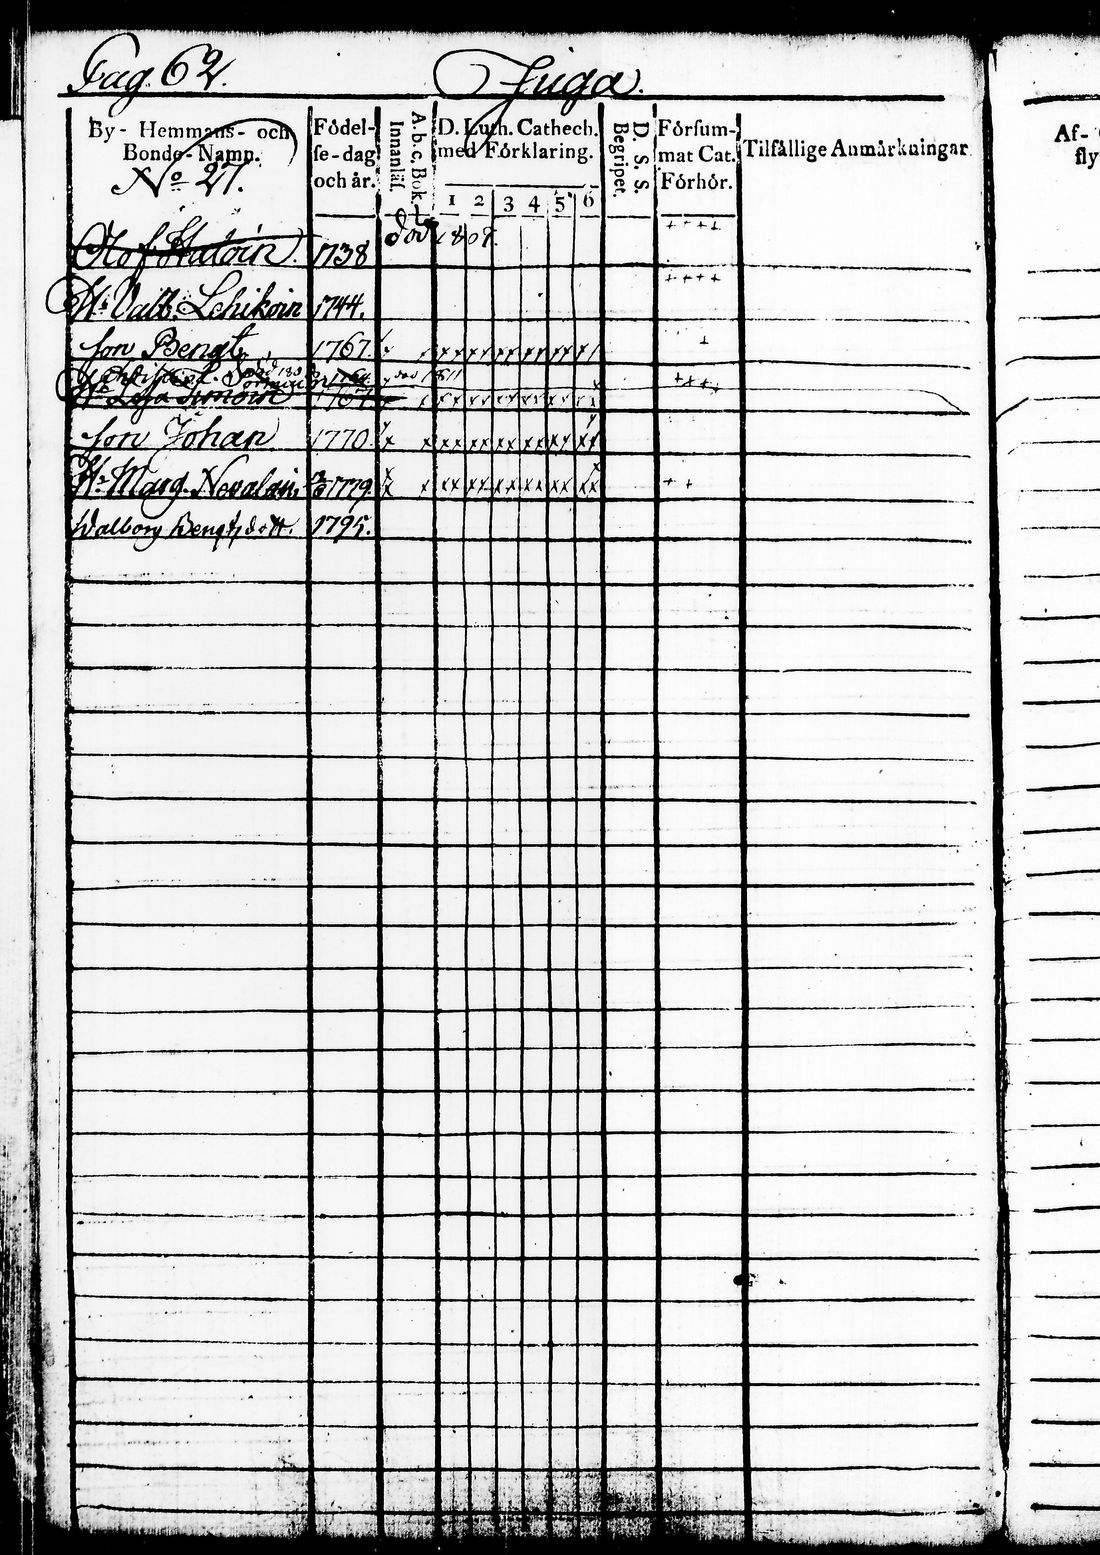 Pag. 62. Juga.
By- Hemmans- och Bonde-Namn.
No 27.
Födel-
se-dag
och år.
A.b.c. Bok.
Innanläs.
D. Luth. Cathech.
med Förklaring.
1 2 3 4 5 6
D. S. S.
Begripet.
Försum-
mat Cat.
Förhör.
Tilfällige Anmärkningar
Af-
fly
Olof 1738 död 1807. ++++
H: Valb. Lehikoin 1744. ++++
son Bengt 1767 x x xx xx xx xx xx x +
död 1811
H: Lisa Simoin 1767
son Johan 1770. x x xx xx xx xx xx xx
H: Marg. Nevalain 1779 x x xx xx xx xx xx xx + +
Walborg Bengtsdott. 1795.